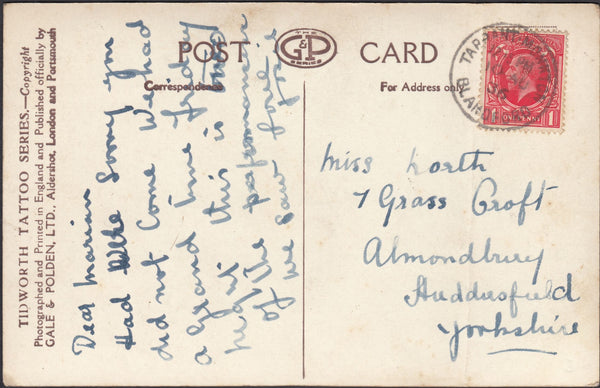 TIDWORTH TATTOO SERIES.—Copyright
Photographed and Printed in England and Published officially by
GALE & POLDEN, LTD., Aldershot, London and Portsmouth
POST CARD
THE
G&P
SERIES
Correspondence
For Address only
ONE PENNY
1
Dear Marian
Had Sorry you
did not Come We had
a grand time friday
night this is
of the performance
we saw
Miss North
7 Grass Croft
Almondbury
Huddersfield
Yorkshire